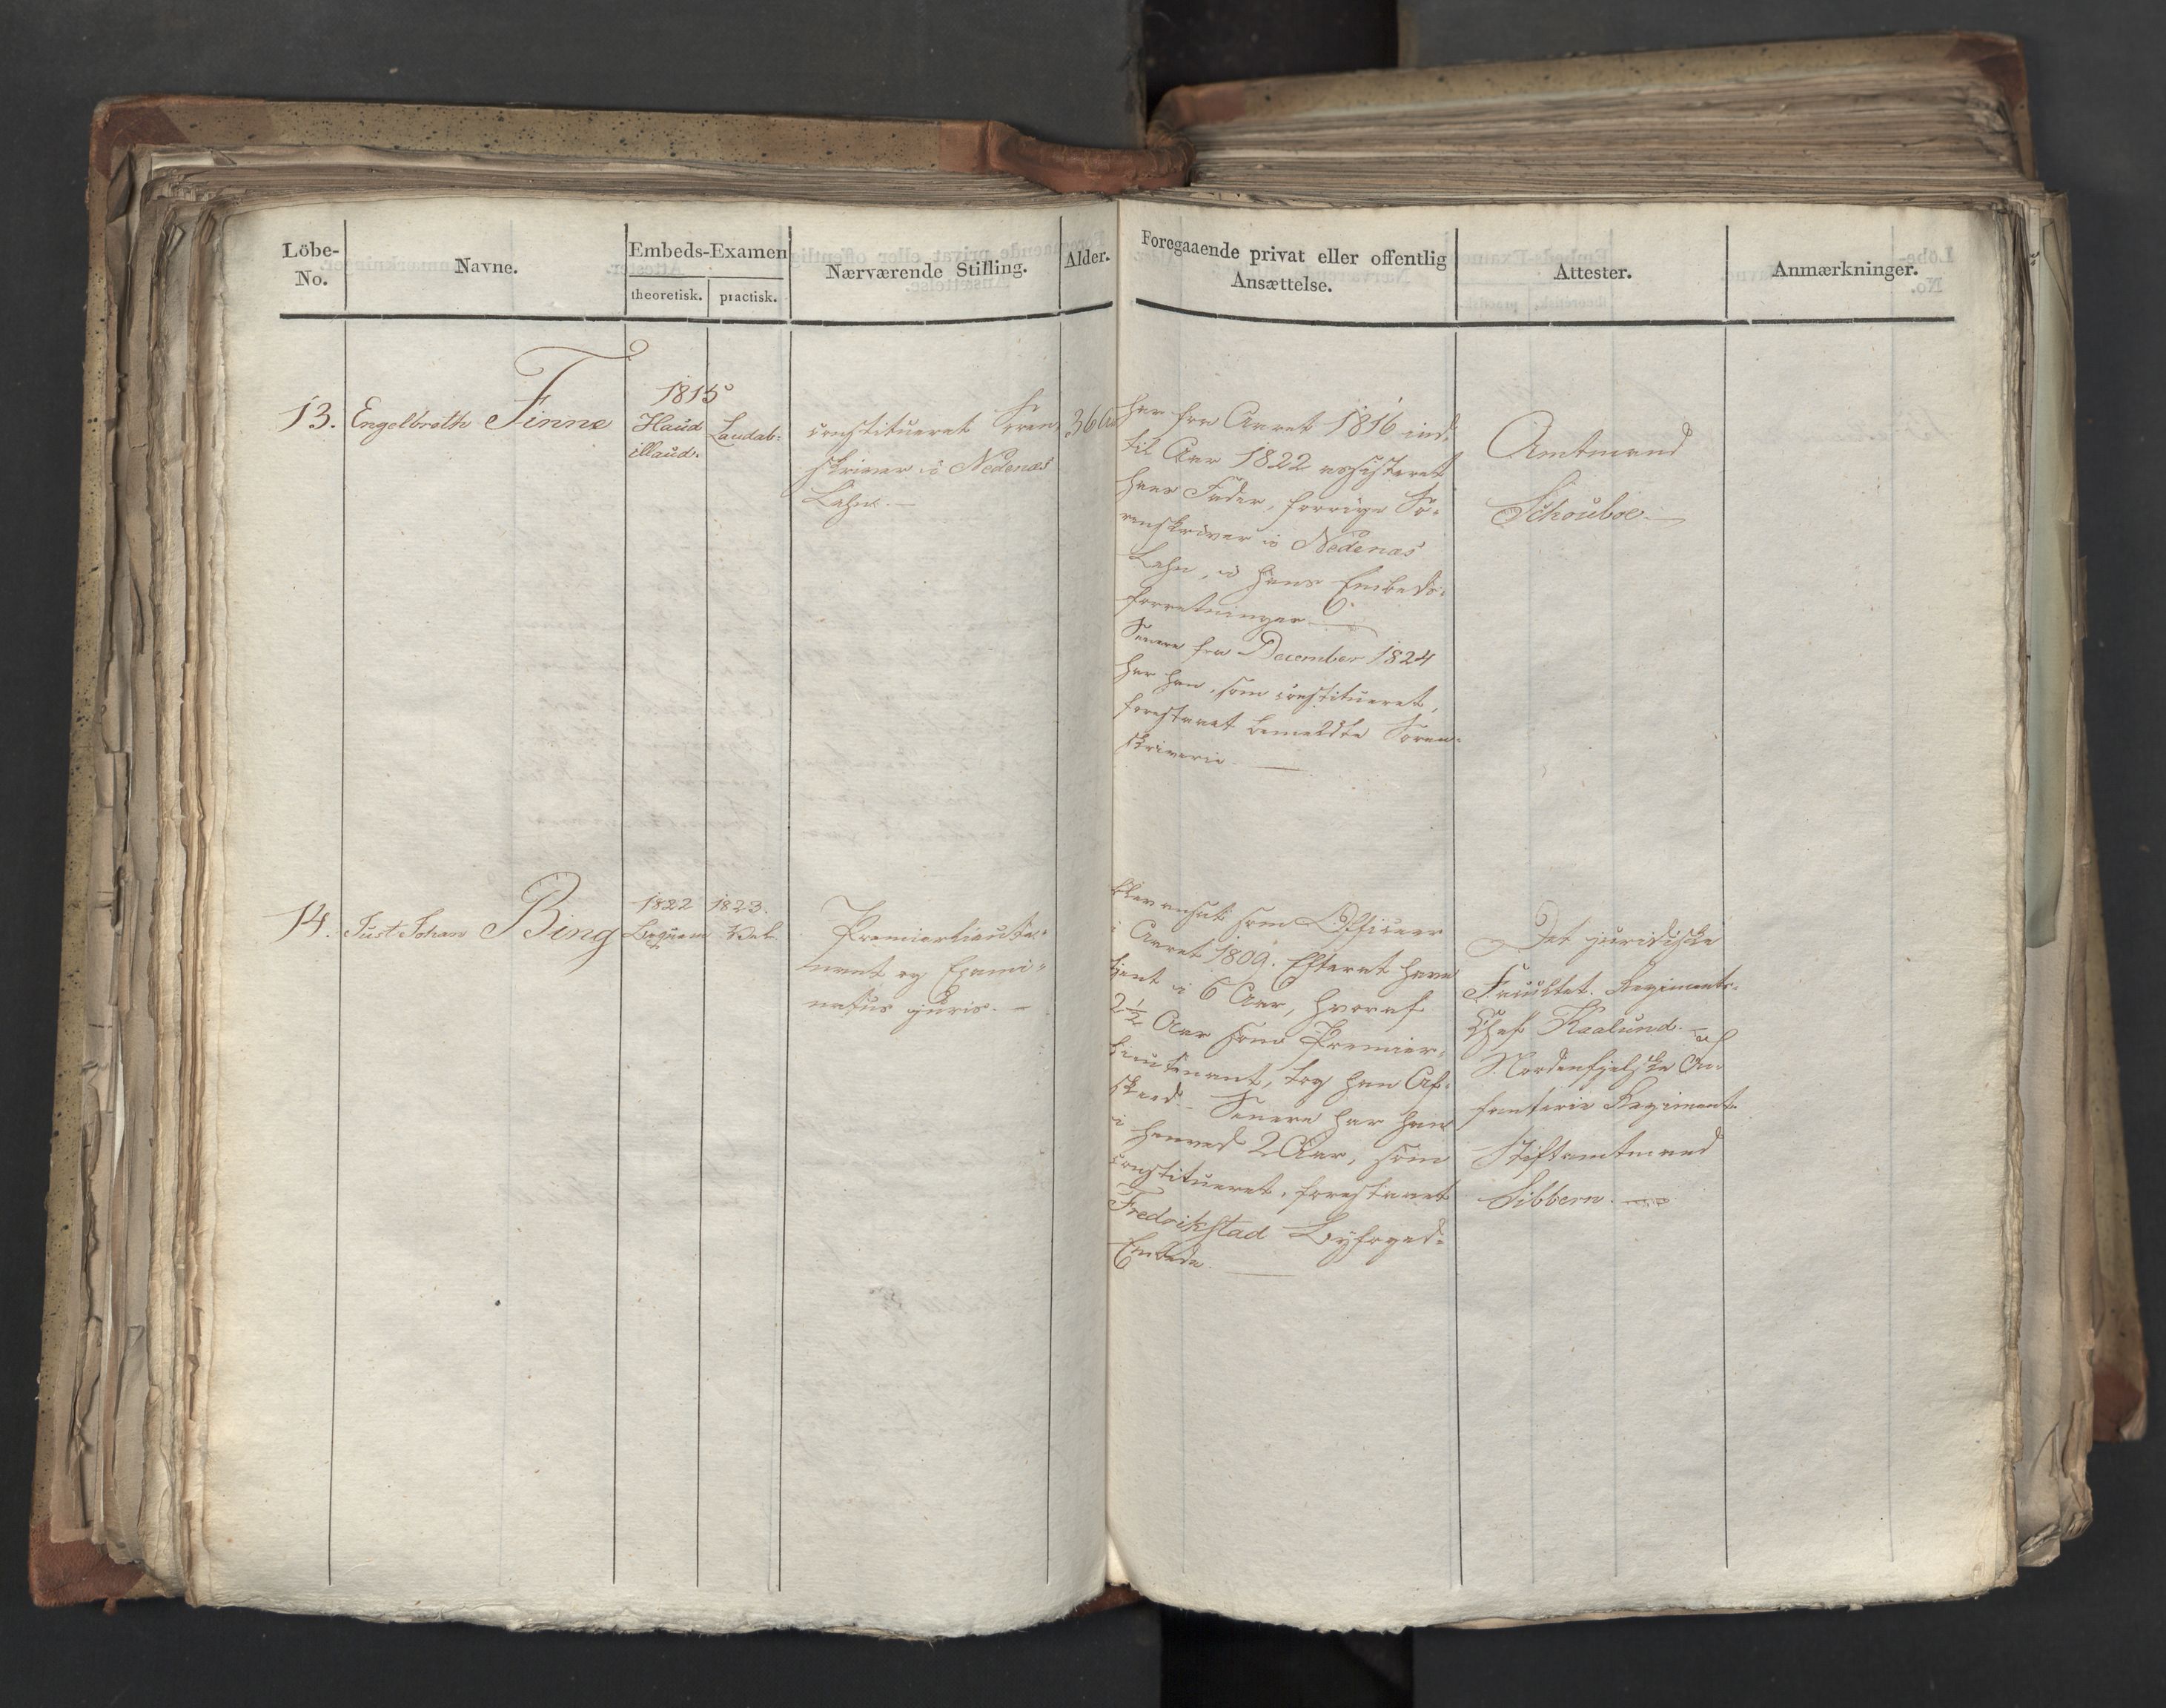 Löbe-
No.
Navne.
Embeds-Examen
theoretisk.
practisk.
Nærværende Stilling.
Alder.
Foregaaende privat eller offentlig
Ansættelse.
Attester.
Anmærkninger.
13.
Engelbreth Finne
1815
Haud
illaud.
Laudab:
constitueret Soren-
skriver i Nedenæs
Lehn. —
36 Aar
har fra Aaret 1816 ind-
til Aar 1822 assisteret
hans Fader, forrige So-
renskriver i Nedenæs
Lehn, i hans Embeds-
forretninger. —
Senere fra December 1824
har han, som constitueret,
forestaaet bemeldte Soren-
skriverie. —
Amtmand
Schouboe. —
14.
Just Johan Bing
1822
Beqvem
1823.
Vel
Premierlieute-
nant og Exami-
natus juris. —
Blev ansat som Officeer
i Aaret 1809. Efterat have
tjent i 6 Aar, hvoraf
2½ Aar som Premier-
lieutenant, tog han Af-
skeed. Senere har han
i henved 2 Aar, som
constitueret, forestaaet
Fredrikstad Byfoged-
Embede. —
Det juridiske
Facultet. Regiments-
Chef Kaalund
Nordenfjelske In-
fanterie Regiment
Stiftamtmand
Sibbern. —